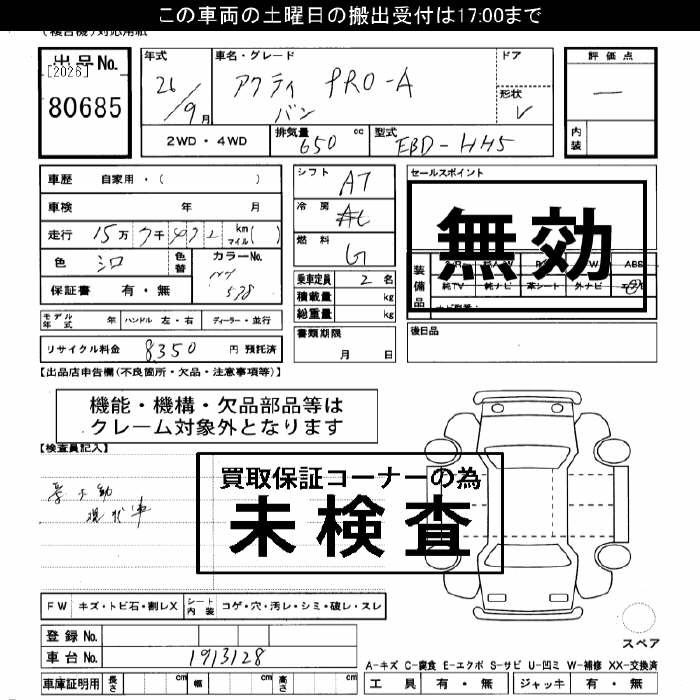 この車両の土曜日の搬出受付は17:00まで
(複合機)対応用紙
出品No.
[2026]
80685
年式
26/9月
車名・グレード
アクティ PRO-A
バン
ドア
形状
V
評価点
―
内装
2WD・4WD
排気量
650 cc
型式
EBD-HH5
車歴 自家用・( )
車検 年 月
走行 15万7千 km マイル( )
色
シロ
色替
カラーNo.
578
保証書 有・無
シフト
AT
冷房
燃料
G
乗車定員 2 名
積載量 kg
総重量 kg
書類期限
月 日
セールスポイント
無効
装備品
ABS
純TV 純ナビ 革シート 外ナビ
後日品
モデル年式 年 ハンドル 左・右 ディーラー・並行
リサイクル料金 8350 円 預託済
【出品店申告欄(不良箇所・欠品・注意事項等)】
機能・機構・欠品部品等は
クレーム対象外となります
【検査員記入】
不動
現状車
買取保証コーナーの為
未検査
FW キズ・トビ石・割レX
シート内装 コゲ・穴・汚レ・シミ・破レ・スレ
登録No.
車台No. 1913128
車庫証明用 長さ cm 幅 cm 高さ cm
スペア
A-キズ C-腐食 E-エクボ S-サビ U-凹ミ W-補修 XX-交換済
工具 有・無 ジャッキ 有・無